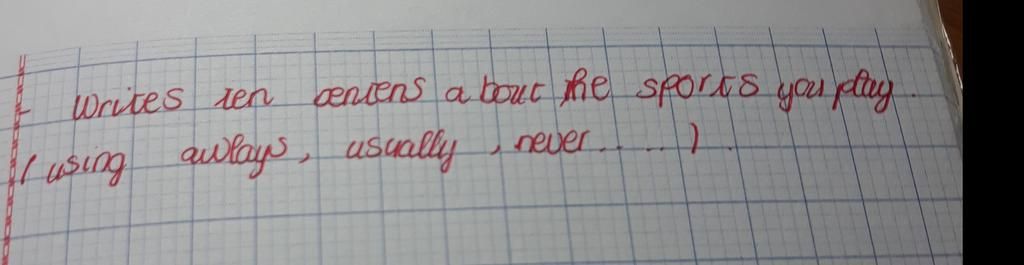 - Writes ten centens about the sports you play.
(using awlays, usually, never.....).